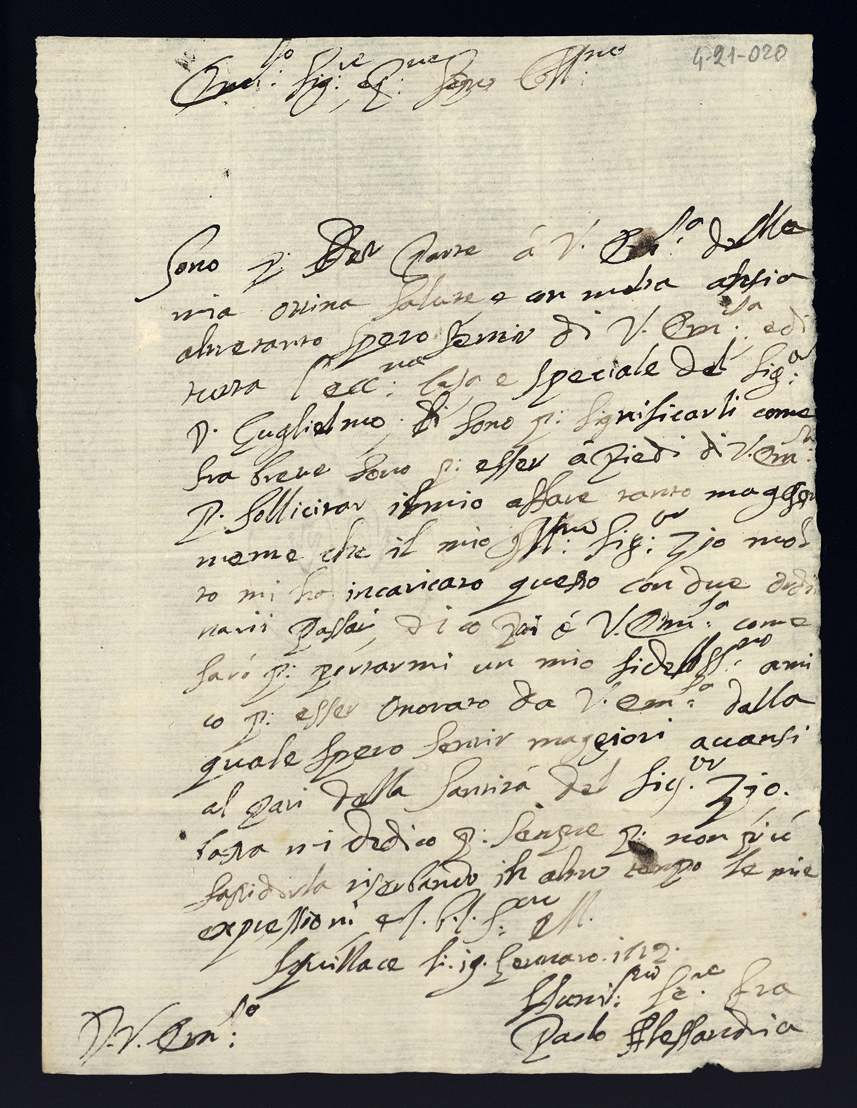 4-21-020
Em.mo Sig.re e P.ne Sempre Coll.mo
Sono p. dar parte á V. Em.za della
mia ottima salute, e con molta ansia
altretanto spero sentir di V. Em.za e di
tutta l'ecc.ma Casa e speciale del Sig.or
D. Guglielmo, Li sono p: significarli come
fra breve sono p: esser á piedi di V. Em.za
p. sollicitar il mio affare tanto maggior
mente che il mio Ill.mo Sig.or Zio mol
to mi ha incaricato questo con due ordi
narii passati, dico poi á V. Em.za come
farò p: portarmi un mio fidelliss.mo ami
co p: esser onorato da V. Em.za dalla
quale spero sentir maggiori avansi
al pari della Santità del Sig.or Zio.
basta mi dedico p: sempre p: non più
fastidirla riserbando in altro tempo le mie
expressioni e
Squillace li 19 Gennaro
D. V. Em.za
Humil.mo Se.re fra
Paolo Alessandria